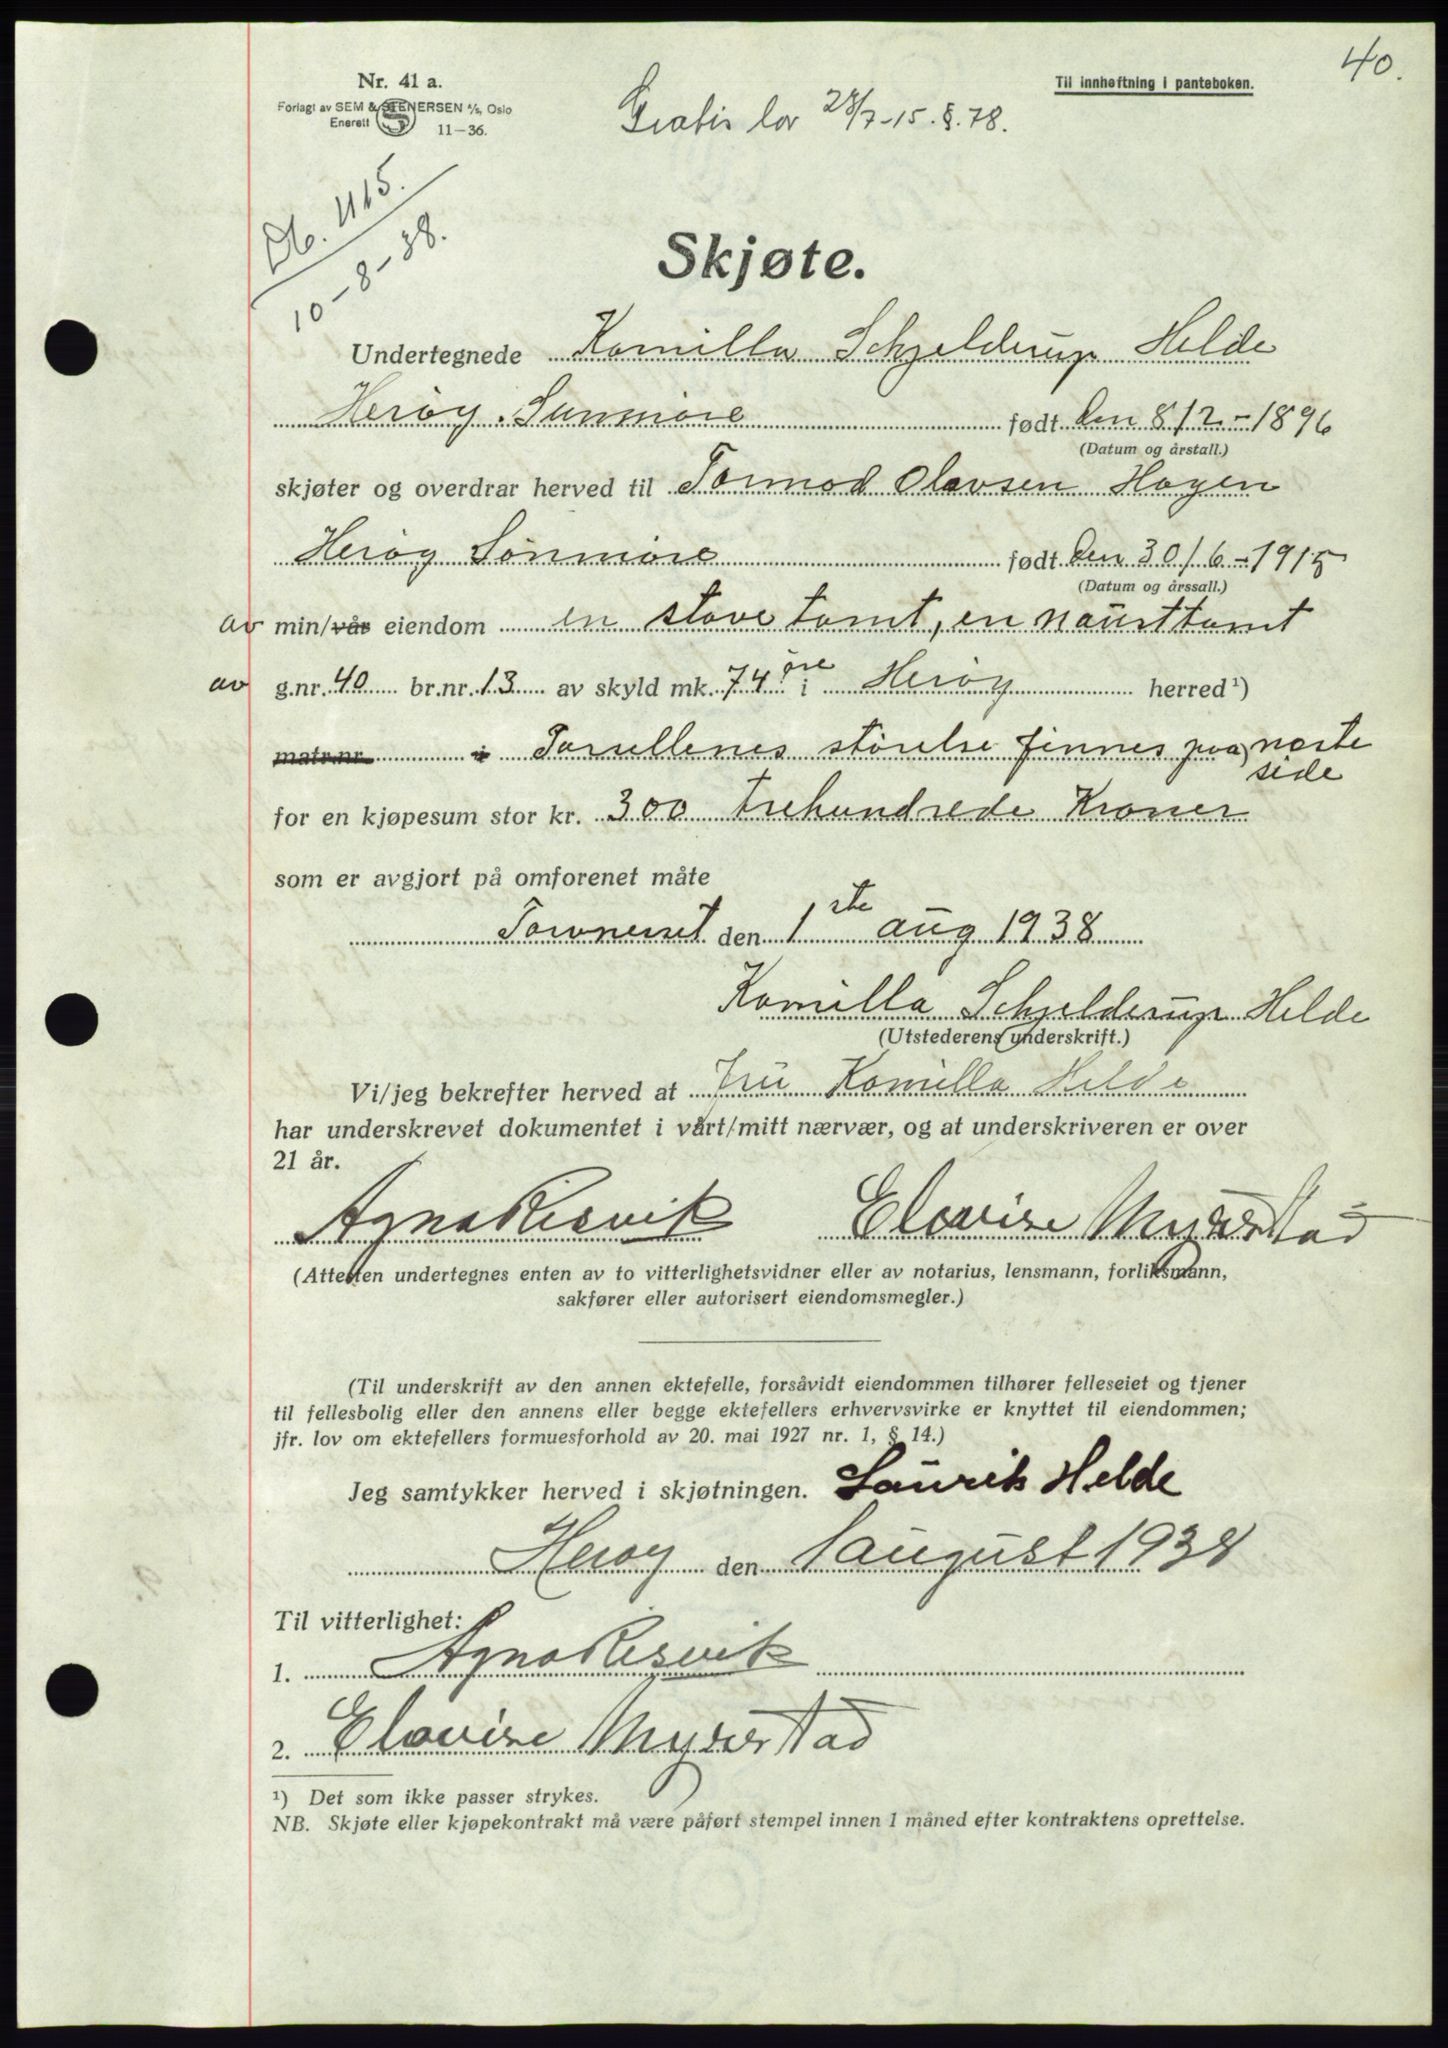 40.
Nr. 41 a.
Til innheftning i panteboken.
Forlagt av SEM & STENERSEN A/S, Oslo
Enerett
11-36.
Gratis lov 28/7-15. §. 78.
Db. 1115.
10-8-38.
Skjøte.
Undertegnede Kamilla Schjelderup Helde
Herøy. Sunmøre født den 8/2-1896
(Datum og årstall.)
skjøter og overdrar herved til Tormod Olavsen Hagen
Herøy Sønmøre født den 30/6-1915
(Datum og årssall.)
av min/vår eiendom en stove tomt, en nausttomt
av g.nr. 40 br.nr. 13 av skyld mk. 74 øre i Herøy herred¹)
matr.nr. i Parsellenes størelse finnes paa næste
side
for en kjøpesum stor kr. 300 trehundrede Kroner
som er avgjort på omforenet måte
den 1ste aug 1938
Kamilla Schjelderup Helde
(Utstederens underskrift.)
Vi/jeg bekrefter herved at fru Kamilla Helde
har underskrevet dokumentet i vårt/mitt nærvær, og at underskriveren er over
21 år.
Agna Risvik Elovise Myrestad
(Attesten undertegnes enten av to vitterlighetsvidner eller av notarius, lensmann, forliksmann,
sakfører eller autorisert eiendomsmegler.)
(Til underskrift av den annen ektefelle, forsåvidt eiendommen tilhører felleseiet og tjener
til fellesbolig eller den annens eller begge ektefellers erhvervsvirke er knyttet til eiendommen;
jfr. lov om ektefellers formuesforhold av 20. mai 1927 nr. 1, § 14.)
Jeg samtykker herved i skjøtningen. Laurits Helde
Herøy den 1 august 1938
Til vitterlighet:
1. Agna Risvik
2. Elovise Myrestad
¹) Det som ikke passer strykes.
NB. Skjøte eller kjøpekontrakt må være påført stempel innen 1 måned efter kontraktens oprettelse.